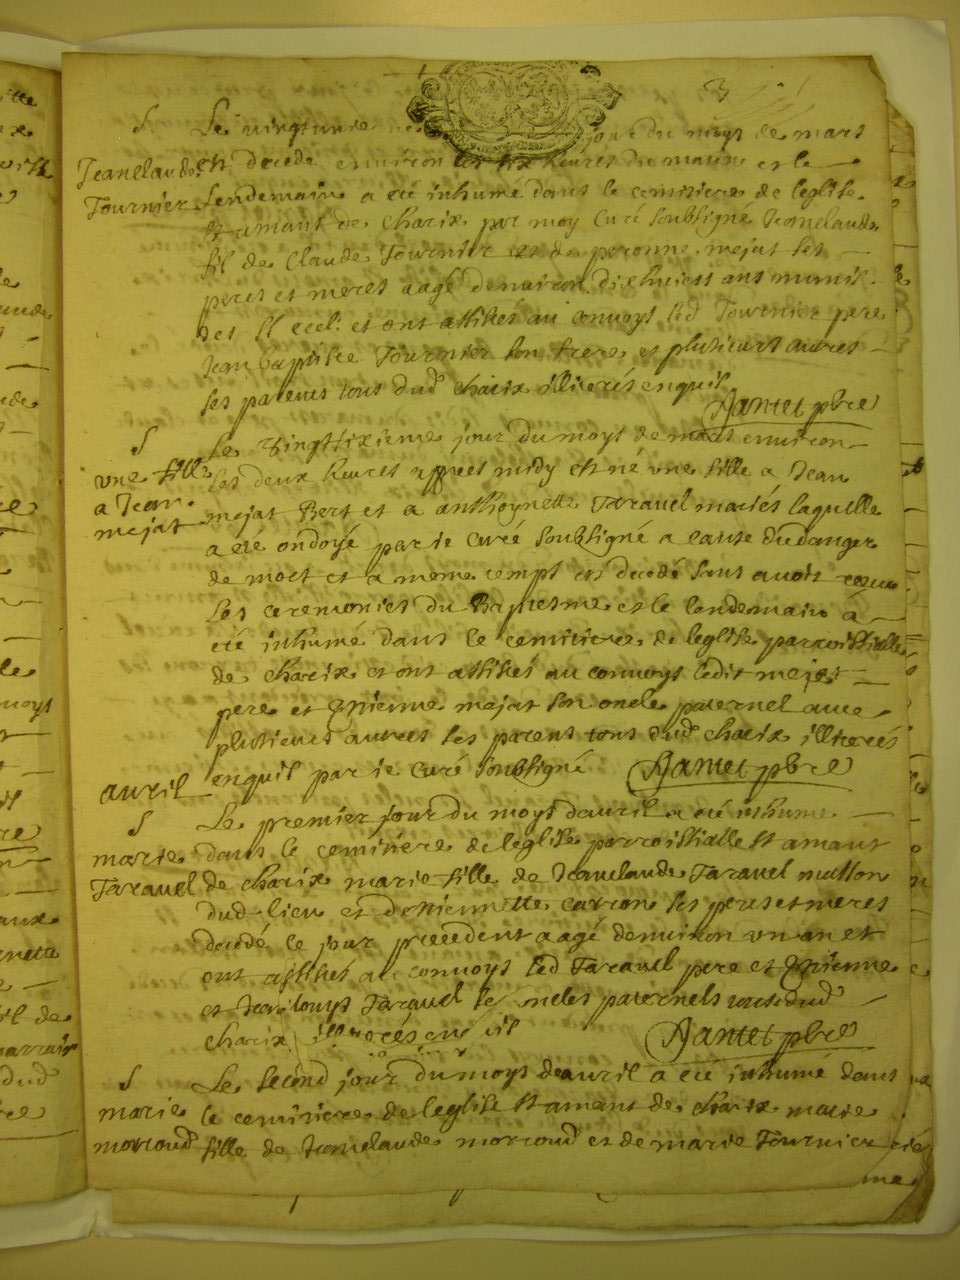 3
S
Le vingtunie jour du moys de mars
Jeanclaude
Tournier
est decede environ les six heures du matin et le
lendemain a eté inhumé dans le cemitiere de leglise
st amant de Charix par moy Curé soubsigné Jeanclaude
fil de Claude Tournier et de peronne mejat ses
peres et meres aagé denviron dixhuict ans munis
des ss eccl: et ont assistés au convoys led Tournier pere
Jean baptiste Tournier son frere et plusieurs autres
ses parents tous dud charix illiterés enquil
Jantet pbre
S
Le vingtsixieme jour du moys de mars environ
une fille
a Jean
mejat
les deux heures appres midy est né une fille a Jean
mejat Bert et a anthoynette Taravel mariés laquelle
a eté ondoyé par ie Curé soubsigné a cause du danger
de mort et a meme temps est decedé sans avoir reçeu
les ceremonies du Baptesme et le lendemain à
eté inhumé dans le cemitiere de leglise parroissialle
de charix et ont assistés au convoys ledit mejat
pere et Etienne mejat son oncle paternel avec
plusieurs autres ses parens tous dud charix illiterés
enquil par ie Curé soubsigné Jantet pbre
avril
S
Le premier jour du moys davril a eté inhume
marie
Taravel
dans le cemitiere de leglise parroissialle st amant
de charix marie fille de Jeanclaude Taravel mullon
dud lieu et dEtiennette carron ses peres et meres
decedé le jour precedent aagé denviron un an et
ont assistés au convoys led Taravel pere et Etienne
et Jean louys Taravel se oncles paternels tous dud
charix illiterés enquil
Jantet pbre
S
Le second jour du moys de avril a eté inhumé dans
marie
morcoud
le cemitiere de leglise st amant de charix marie
fille de Jeanclaude morcoud et de marie Tournier
me